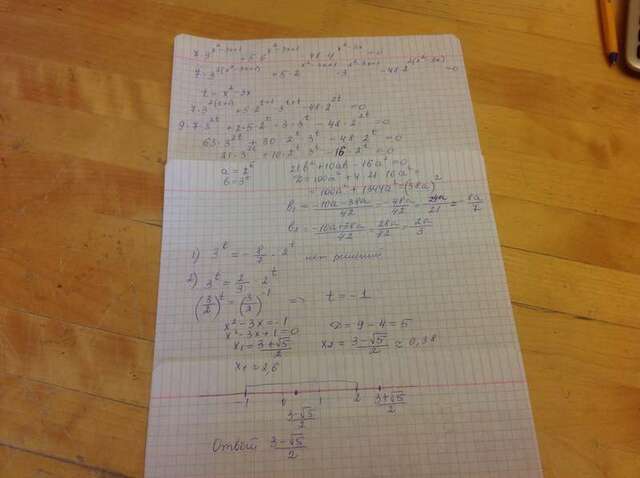 7·9^(x²-3x+1) + 5·6^(x²-3x+1) - 48·4^(x²-3x) = 0
7·3^(2(x²-3x+1)) + 5·2^(x²-3x+1)·3^(x²-3x+1) - 48·2^(2(x²-3x)) = 0
t = x²-3x
7·3^(2(t+1)) + 5·2^(t+1)·3^(t+1) - 48·2^(2t) = 0
9·7·3^(2t) + 2·5·2^t·3·3^t - 48·2^(2t) = 0
63·3^(2t) + 30·2^t·3^t - 48·2^(2t) = 0
21·3^(2t) + 10·2^t·3^t - 16·2^(2t) = 0
a = 2^t 21b² + 10ab - 16a² = 0
b = 3^t D = 100a² + 4·21·16a² =
= 100a² + 1344a² = (38a)²
b₁ = (-10a-38a)/42 = -48a/42 = -24a/21 = -8a/7
b₂ = (-10a+38a)/42 = 28a/42 = 2a/3
1) 3^t = -8/7·2^t нет решения
2) 3^t = 2/3·2^t
(3/2)^t = (3/2)^(-1) => t = -1
x²-3x = -1 D = 9-4 = 5
x²-3x+1 = 0
x₁ = (3+√5)/2 x₂ = (3-√5)/2 ≈ 0,38
x₁ ≈ 2,6
-1 0 1 2 (3+√5)/2
(3-√5)/2
Ответ (3-√5)/2